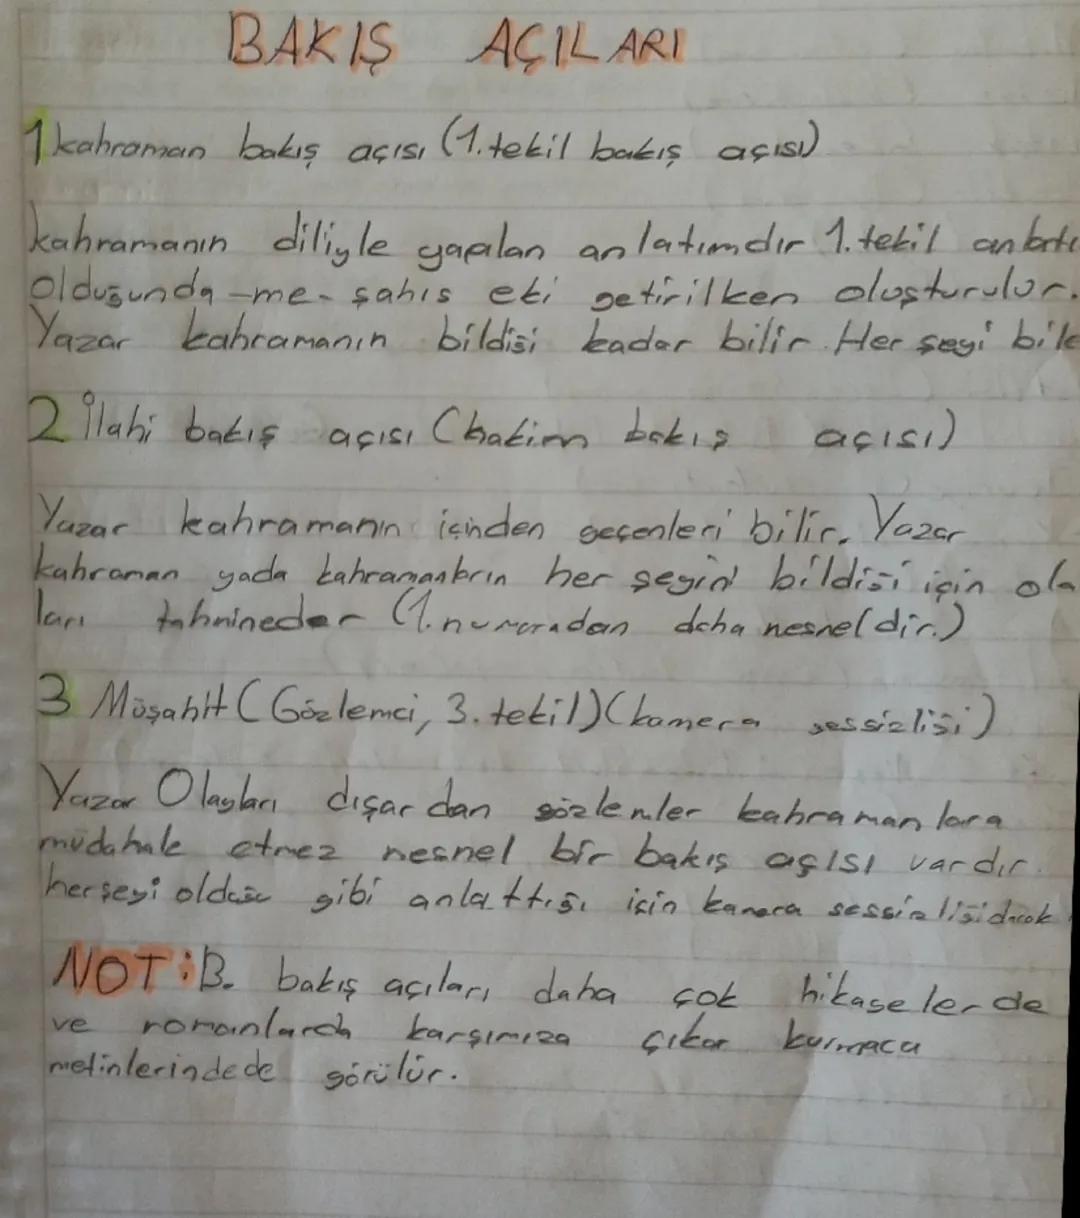 BAKIŞ AÇILARI
1 kahraman bakış açısı (1. tekil bakış açısı)
kahramanın diliyle yapılan anlatımdır 1. tekil
olduğunda -me- şahıs eki getirilken oluşturulur.
Yazar kahramanın bildiği kadar bilir. Her şeyi bile
2 İlahi bakış açısı (hakim bakış açısı)
Yazar kahramanın içinden geçenleri bilir. Yazar
kahraman yada kahramanların her şeyini bildiği için ola
ları tahmineder (1. numaradan daha nesneldir.)
3 Müşahit (Gözlemci, 3. tekil) (kamera sessizliği)
Yazar Olayları dışardan gözlemler kahramanlara
müdahale etmez nesnel bir bakış açısı vardır.
herşeyi olduğu gibi anlattığı için kamera sessizliği
NOT: B. bakış açıları daha çok hikayelerde
ve romanlarda karşımıza çıkar kurmaca
metinlerindede görülür.